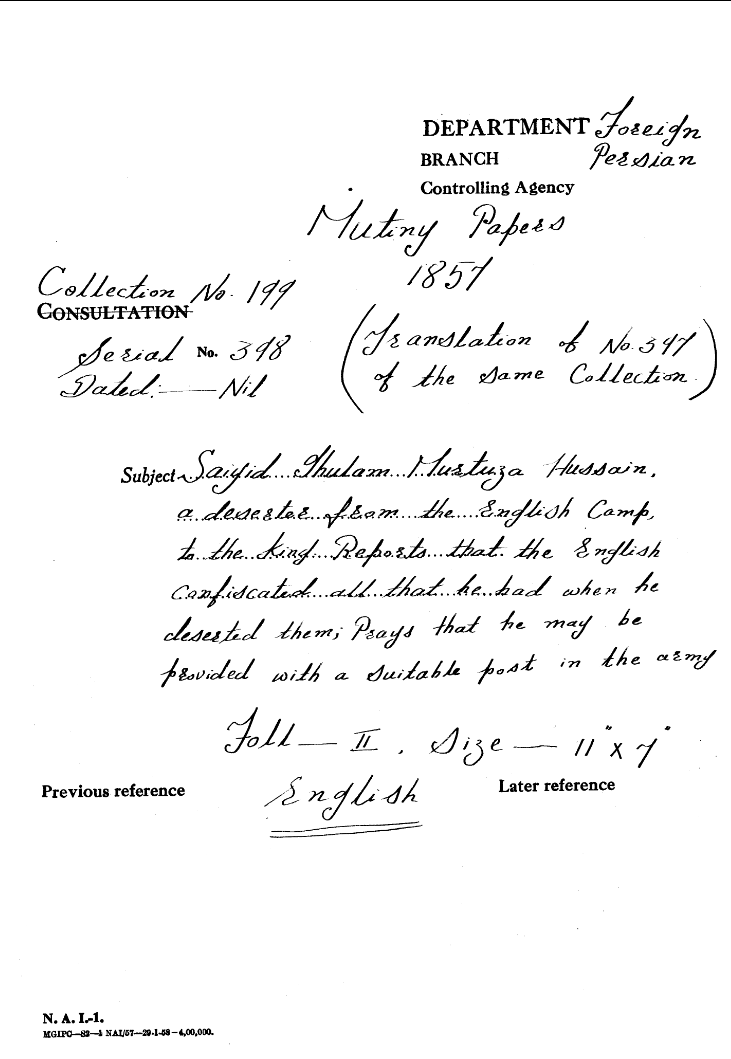 DEPARTMENT Foreign
BRANCH Persian
Controlling Agency
Mutiny Papers
1857
Collection No. 199
CONSULTATION
Serial No. 398
(Translation of No. 397
of the same Collection.)
Dated:— Nil
Subject Saiyid Ghulam Murtuza Hussain,
a deserter from the English Camp,
to the King Reports that the English
Confiscated all that he had when he
deserted them; Prays that he may be
provided with a suitable post in the army
Foll — II. Size — 11" x 7"
Previous reference English Later reference
N. A. I.-1.
MGIPC—S2—1 NAI/57—29-1-58—4,00,000.